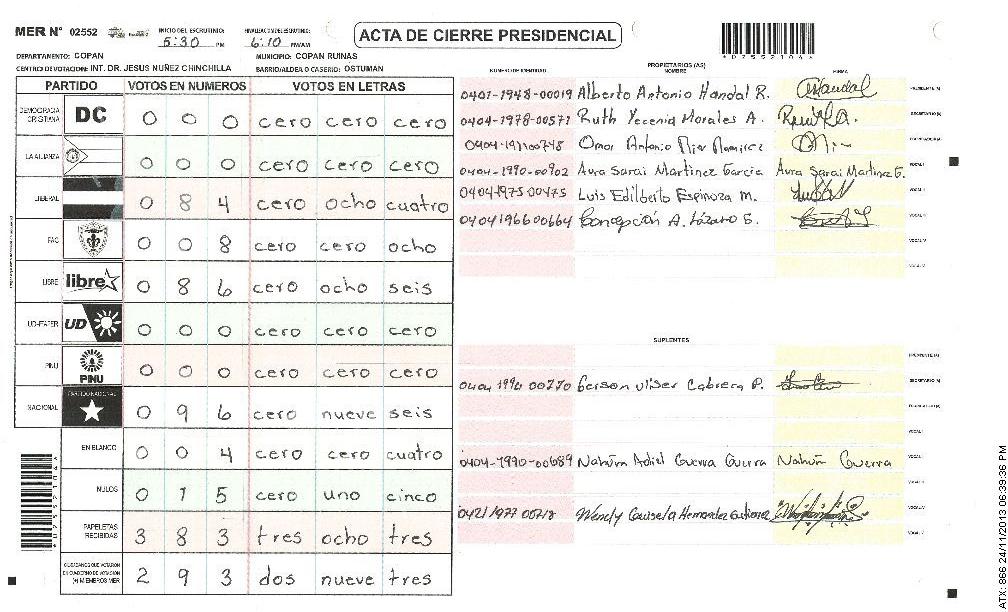 MER Nº 02552
INICIO DEL ESCRUTINIO: FINALIZACION DEL ESCRUTINIO:
5:30 PM 6:10 PM/AM
ACTA DE CIERRE PRESIDENCIAL
DEPARTAMENTO: COPAN MUNICIPIO: COPAN RUINAS
CENTRO DE VOTACION: INT. DR. JESUS NUÑEZ CHINCHILLA BARRIO/ALDEA O CASERIO: OSTUMAN
PARTIDO VOTOS EN NUMEROS VOTOS EN LETRAS
DEMOCRACIA CRISTIANA DC 0 0 0 cero cero cero
LA ALIANZA 0 0 0 cero cero cero
LIBERAL 0 8 4 cero ocho cuatro
PAC 0 0 8 cero cero ocho
LIBRE libre 0 8 6 cero ocho seis
UD-FAPER UD 0 0 0 cero cero cero
PINU PINU 0 0 0 cero cero cero
NACIONAL PARTIDO NACIONAL 0 9 6 cero nueve seis
EN BLANCO 0 0 4 cero cero cuatro
NULOS 0 1 5 cero uno cinco
PAPELETAS RECIBIDAS 3 8 3 tres ocho tres
CIUDADANOS QUE VOTARON EN CUADERNO DE VOTACION (+) MIEMBROS MER 2 9 3 dos nueve tres
*02552106*
PROPIETARIOS (AS)
NUMERO DE IDENTIDAD NOMBRE FIRMA
0401-1948-00019 Alberto Antonio Handal R. PRESIDENTE (A)
0404-1978-00571 Ruth Yecenia Morales A. SECRETARIO (A)
Omar Antonio
0404-1990-00902 Aura Sarai Martinez Garcia Aura Sarai Martinez G. VOCAL I
0404-1975-00475 Luis Edilberto Espinoza M.
0404196600664 Concepción A. Lázaro G.
SUPLENTES
PRESIDENTE (A)
0404 1990 00770 Gerson Cabrera P. SECRETARIO (A)
0404-1990-00689 Nahúm Adiel Guerra Guerra Nahúm Guerra
Wendy Hernandez
ATX: 866 24/11/2013 06:39:36 PM